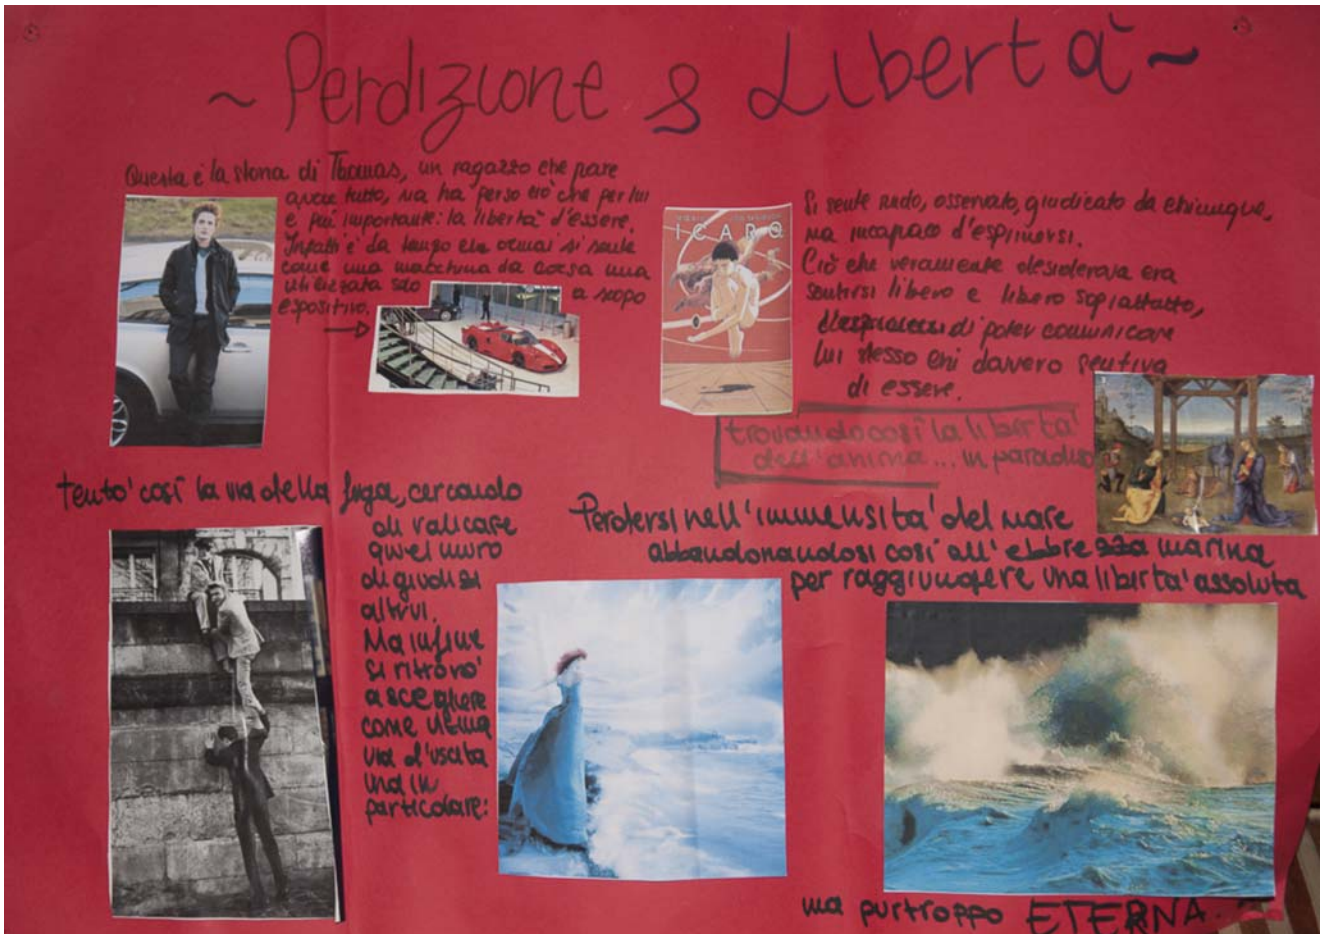 ~ Perdizione & Libertà ~
Questa è la storia di Thomas, un ragazzo che pare
avere tutto, ma ha perso ciò che per lui
è più importante: la libertà d'essere.
Infatti è da tempo che ormai si sente
come una macchina da corsa una
utilizzata solo a scopo
espositivo.
ICARO
Si sente nudo, osservato, giudicato da chiunque,
ma incapace d'esprimersi.
Ciò che veramente desiderava era
sentirsi libero e libero soprattutto,
di poter comunicare
lui stesso chi davvero sentiva
di essere.
trovando così la libertà
dell'anima... in paradiso
tentò così la via della fuga, cercando
di valicare
quel muro
di giudizi
altrui.
Ma infine
si ritrovò
a scegliere
come ultima
via d'uscita
una in
particolare:
Perdersi nell'immensità del mare
abbandonandosi così all'ebbrezza marina
per raggiungere una libertà assoluta
ma purtroppo ETERNA.